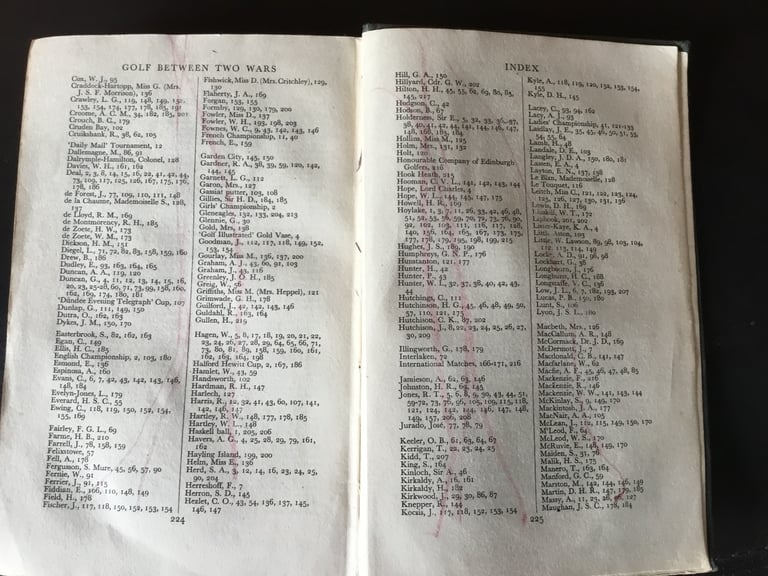 GOLF BETWEEN TWO WARS
Cox, W. J., 95
Craddock-Hartopp, Miss G (Mrs.
J. S. F. Morrison), 136
Crawley, L. G., 119, 148, 149, 152,
153, 154, 174, 177, 178, 185, 191
Croome, A. C. M., 34, 182, 183, 201
Crouch, B. C., 179
Cruden Bay, 102
Cruikshank, R., 38, 62, 105
'Daily Mail' Tournament, 12
Dallemagne, M., 86, 91
Dalrymple-Hamilton, Colonel, 128
Davies, W. H., 161, 162
Deal, 2, 8, 14, 15, 16, 22, 41, 42, 44,
73, 109, 117, 125, 126, 167, 175, 176,
178, 186
de Forest, J., 77, 109, 110, 111, 148
de la Chaume, Mademoiselle S., 128,
137
de Lloyd, R. M., 169
de Montmorency, R. H., 185
de Zoete, H. W., 173
de Zoete, W. M., 173
Dickson, H. M., 151
Diegel, L., 71, 72, 82, 83, 158, 159, 160
Drew, B., 186
Dudley, E., 93, 163, 164, 165
Duncan, A. A., 119, 120
Duncan, G., 4, 11, 12, 13, 14, 15, 16,
20, 23, 25-28, 60, 71, 73, 99, 158, 160,
162, 169, 174, 180, 181
'Dundee Evening Telegraph' Cup, 107
Dunlap, G., 111, 149, 150
Dutra, O., 162, 163
Dykes, J. M., 150, 170
Easterbrook, S., 82, 162, 163
Egan, C., 149
Ellis, H. C., 185
English Championship, 2, 103, 180
Esmond, E., 136
Espinosa, A., 160
Evans, C., 6, 7, 42, 43, 142, 143, 146,
148, 184
Evelyn-Jones, L., 179
Everard, H. S. C., 55
Ewing, C., 118, 119, 150, 152, 154,
155, 169
Fairley, F. G. L., 69
Farme, H. B., 210
Farrell, J., 78, 158, 159
Felixstowe, 57
Fell, A., 178
Ferguson, S. Mure, 45, 56, 57, 90
Fernie, W., 91
Ferrier, J., 91, 115
Fiddian, E., 166, 110, 148, 149
Field, H., 178
Fischer, J., 117, 118, 150, 152, 153, 154
Fishwick, Miss D. (Mrs. Critchley), 129,
130
Flaherty, J. A., 169
Forgan, 153, 155
Formby, 129, 130, 179, 200
Fowler, Miss D., 137
Fowler, W. H., 193, 198, 203
Fownes, W. C., 9, 43, 142, 143, 146
French Championship, 11, 40
French, E., 159
Garden City, 145, 150
Gardner, R. A., 38, 39, 59, 120, 142,
144, 145
Garnett, L. G., 112
Garon, Mrs., 127
Gassiat putter, 103, 108
Gillies, Sir H. D., 184, 185
Girls' Championship, 2
Gleneagles, 132, 133, 204, 213
Glennie, G., 30
Gold, Mrs, 198
'Golf Illustrated' Gold Vase, 4
Goodman, J., 112, 117, 118, 149, 152,
153, 154
Gourlay, Miss M., 136, 137, 200
Graham, A. J., 43, 60, 91, 103
Graham, J., 43, 116
Greenley, J. O. H., 185
Greig, W., 56
Griffiths, Miss M. (Mrs. Heppel), 121
Grimwade, G. H., 178
Guilford, J., 42, 142, 143, 146
Guldahl, R., 163, 164
Gullen, H., 219
Hagen, W., 5, 8, 17, 18, 19, 20, 21, 22,
23, 24, 26, 27, 28, 29, 64, 65, 66, 71,
73, 80, 81, 89, 158, 159, 160, 161,
162, 163, 164, 198
Halford Hewitt Cup, 2, 167, 186
Hamlet, W., 43, 59
Handsworth, 102
Hardman, R. H., 147
Harlech, 127
Harris, R., 12, 32, 41, 43, 60, 107, 141,
142, 146, 147
Hartley, R. W., 148, 177, 178, 185
Hartley, W. L., 148
Haskell ball, 1, 205, 206
Havers, A. G., 4, 25, 28, 29, 79, 161,
162
Hayling Island, 199, 200
Helm, Miss E., 136
Herd, S. A., 3, 12, 14, 16, 23, 24, 25,
90, 204
Herreshoff, F., 7
Herron, S. D., 145
Hezlet, C. O., 43, 54, 136, 137, 145,
146, 147
224
INDEX
Hill, G. A., 150
Hillyard, Cdr. G. W., 202
Hilton, H. H., 45, 55, 62, 69, 80, 85,
145, 217
Hodgson, C., 42
Hodson, B., 67
Holderness, Sir E., 5, 32, 33, 36, 37,
38, 40, 41, 42, 44, 141, 144, 146, 147,
148, 166, 183, 184
Hollins, Miss M., 125
Holm, Mrs., 131, 136
Holt, 120
Honourable Company of Edinburgh
Golfers, 216
Hook Heath, 215
Hooman, C. V. L., 141, 142, 143, 144
Hope, Lord Charles, 4
Hope, W. L., 144, 145, 147, 175
Howell, H. R., 169
Hoylake, 1, 3, 7, 11, 26, 33, 42, 46, 48,
51, 52, 53, 56, 59, 70, 72, 73, 76, 90,
92, 102, 103, 111, 116, 117, 128,
140, 156, 164, 165, 167, 173, 175,
177, 178, 179, 195, 198, 199, 215
Hughes, J. S., 189, 190
Humphreys, G. N. F., 176
Hunstanton, 121, 177
Hunter, H., 42
Hunter, P., 53
Hunter, W. L., 32, 37, 38, 40, 42, 43,
44
Hutchings, C., 111
Hutchinson, H. G., 45, 46, 48, 49, 50,
57, 110, 121, 175
Hutchison, C. K., 87, 202
Hutchison, J., 8, 22, 23, 24, 25, 26, 27,
30, 209
Illingworth, G., 178, 179
Interlaken, 72
International Matches, 166-171, 216
Jamieson, A., 62, 63, 146
Johnston, H. R., 63, 145
Jones, R. T., 5, 6, 8, 9, 30, 43, 44, 51,
59-72, 73, 76, 96, 105, 109, 115, 118,
121, 124, 142, 144, 146, 147, 148,
149, 157, 206, 208
Jurado, José, 77, 78, 79
Keeler, O. B., 61, 63, 64, 67
Kerrigan, T., 22, 23, 24, 25
Kidd, T., 207
King, S., 164
Kinloch, Sir A., 46
Kirkaldy, A., 16, 161
Kirkaldy, H., 182
Kirkwood, J., 29, 30, 86, 87
Knepper, R., 144
Kocsis, J., 117, 118, 152, 153, 154
Kyle, A., 118, 119, 120, 152, 153, 154,
155
Kyle, D. H., 145
Lacey, C., 93, 94, 162
Lacy, A. J., 93
Ladies' Championship, 41, 121-133
Laidlay, J. E., 35, 45, 46, 50, 51, 55,
54, 55, 62
Lamb, H., 48
Landale, D. E., 103
Langley, J. D. A., 150, 180, 181
Lassen, E. A., 4
Layton, E. N., 137, 138
Le Blan, Mademoiselle, 128
Le Touquet, 116
Leitch, Miss C., 121, 122, 123, 124,
125, 126, 127, 130, 131, 136
Lewis, D. H., 169
Linskill, W. T., 172
Liphook, 201, 202
Lister-Kaye, K. A., 4
Little Aston, 103
Little, W. Lawson, 89, 98, 103, 104,
112, 113, 114, 149
Locke, A. D., 91, 96, 98
Lockhart, G., 38
Longbourn, J., 176
Longhurst, H. C., 188
Longstaffe, V. C., 136
Low, J. L., 6, 7, 182, 193, 207
Lucas, P. B., 150, 180
Lunt, S., 106
Lyon, J. S. L., 180
Macbeth, Mrs., 126
MacCallum, A. R., 148
McCormack, Dr. J. D., 169
McDermott, J., 7
Macdonald, G. B., 141, 147
Macfarlane, W., 62
Macfie, A. F., 45, 46, 47, 48, 85
Mackenzie, F., 216
Mackenzie, R., 146
Mackenzie, W. W., 141, 143, 144
McKinlay, S., 0, 149, 170
Mackintosh, J. A., 177
MacNair, A. A., 105
McLean, J., 112, 115, 149, 150, 170
M'Leod, F., 64
McLeod, W. S., 170
McRuvie, E., 148, 149, 170
Maiden, S., 31, 76
Malik, H. S., 175
Manero, T., 163, 164
Manford, G. C., 59
Marston, M., 142, 144, 146, 149
Martin, D. H. R., 147, 179, 185
Massy, A., 11, 23, 26, 127
Maughan, J. S. C., 178, 184
225